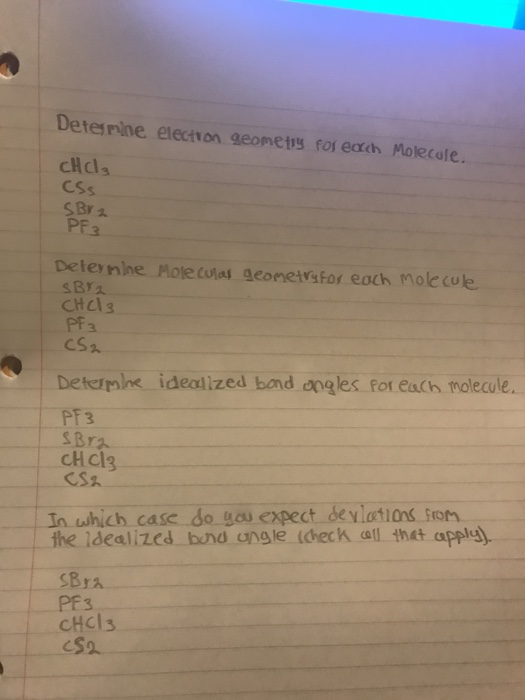 Determine electron geometry for each Molecule.
CHCl3
CSs
SBr2
PF3
Determine Molecular geometry for each Molecule
SBr2
CHCl3
PF3
CS2
Determine idealized bond angles for each molecule.
PF3
SBr2
CHCl3
CS2
In which case do you expect deviations from
the idealized bond angle (check all that apply).
SBr2
PF3
CHCl3
CS2